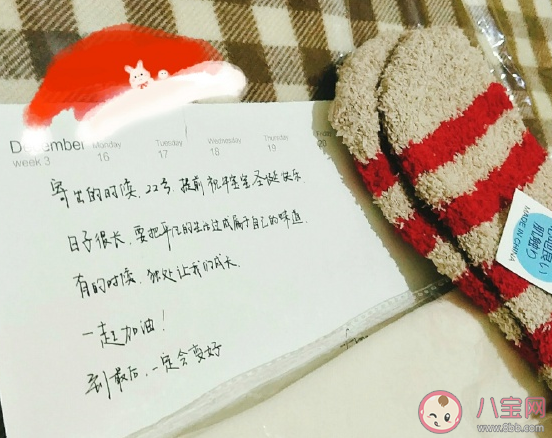 December
week 3
Monday
16
Tuesday
17
Wednesday
18
Thursday
19
Friday
20
寄出的时候,22号,提前祝平宝宝圣诞快乐.
日子很长,要把平凡的生活过成属于自己的味道.
有的时候,独处让我们成长.
一起加油!
到最后,一定会变好
MADE IN CHINA
肌触り
八宝网
www.8bb.com